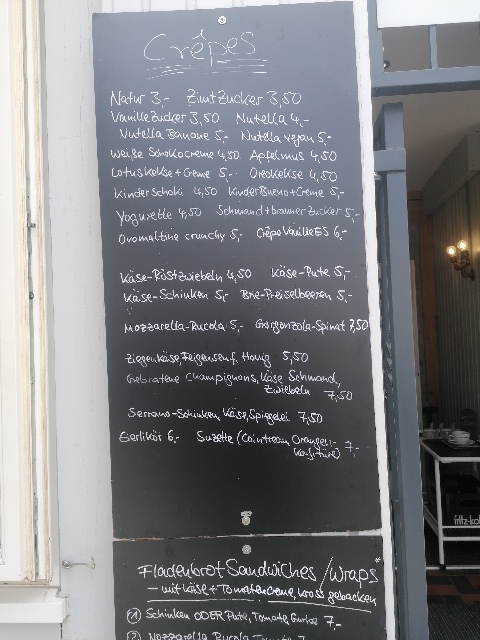 Crêpes
Natur 3,- Zimtzucker 3,50
Vanillezucker 3,50 Nutella 4,-
Nutella Banane 5,- Nutella vegan 5,-
Weiße Schokocreme 4,50 Apfelmus 4,50
Lotuskekse + Creme 5,- Oreokekse 4,50
Kinderschoki 4,50 KinderBueno+Creme 5,-
Yogurette 4,50 Schmand+brauner Zucker 5,-
Ovomaltine crunchy 5,- Crêpe VanilleEis 6,-
Käse-Röstzwiebeln 4,50 Käse-Pute 5,-
Käse-Schinken 5,- Brie-Preiselbeeren 5,-
Mozzarella-Rucola 5,- Gorgonzola-Spinat 7,50
Ziegenkäse, Feigensenf, Honig 5,50
Gebratene Champignons, Käse Schmand,
Zwiebeln 7,50
Serrano-Schinken Käse, Spiegelei 7,50
Eierlikör 6,- Suzette (Cointreau Orangen-
Konfitüre) 7,-
Fladenbrot Sandwiches / Wraps*
- mit Käse + Tomatencreme, kross gebacken
① Schinken ODER Pute, Tomate, Gurke 7,-
② Mozzarella Rucola Tomate 7
fritz-kol